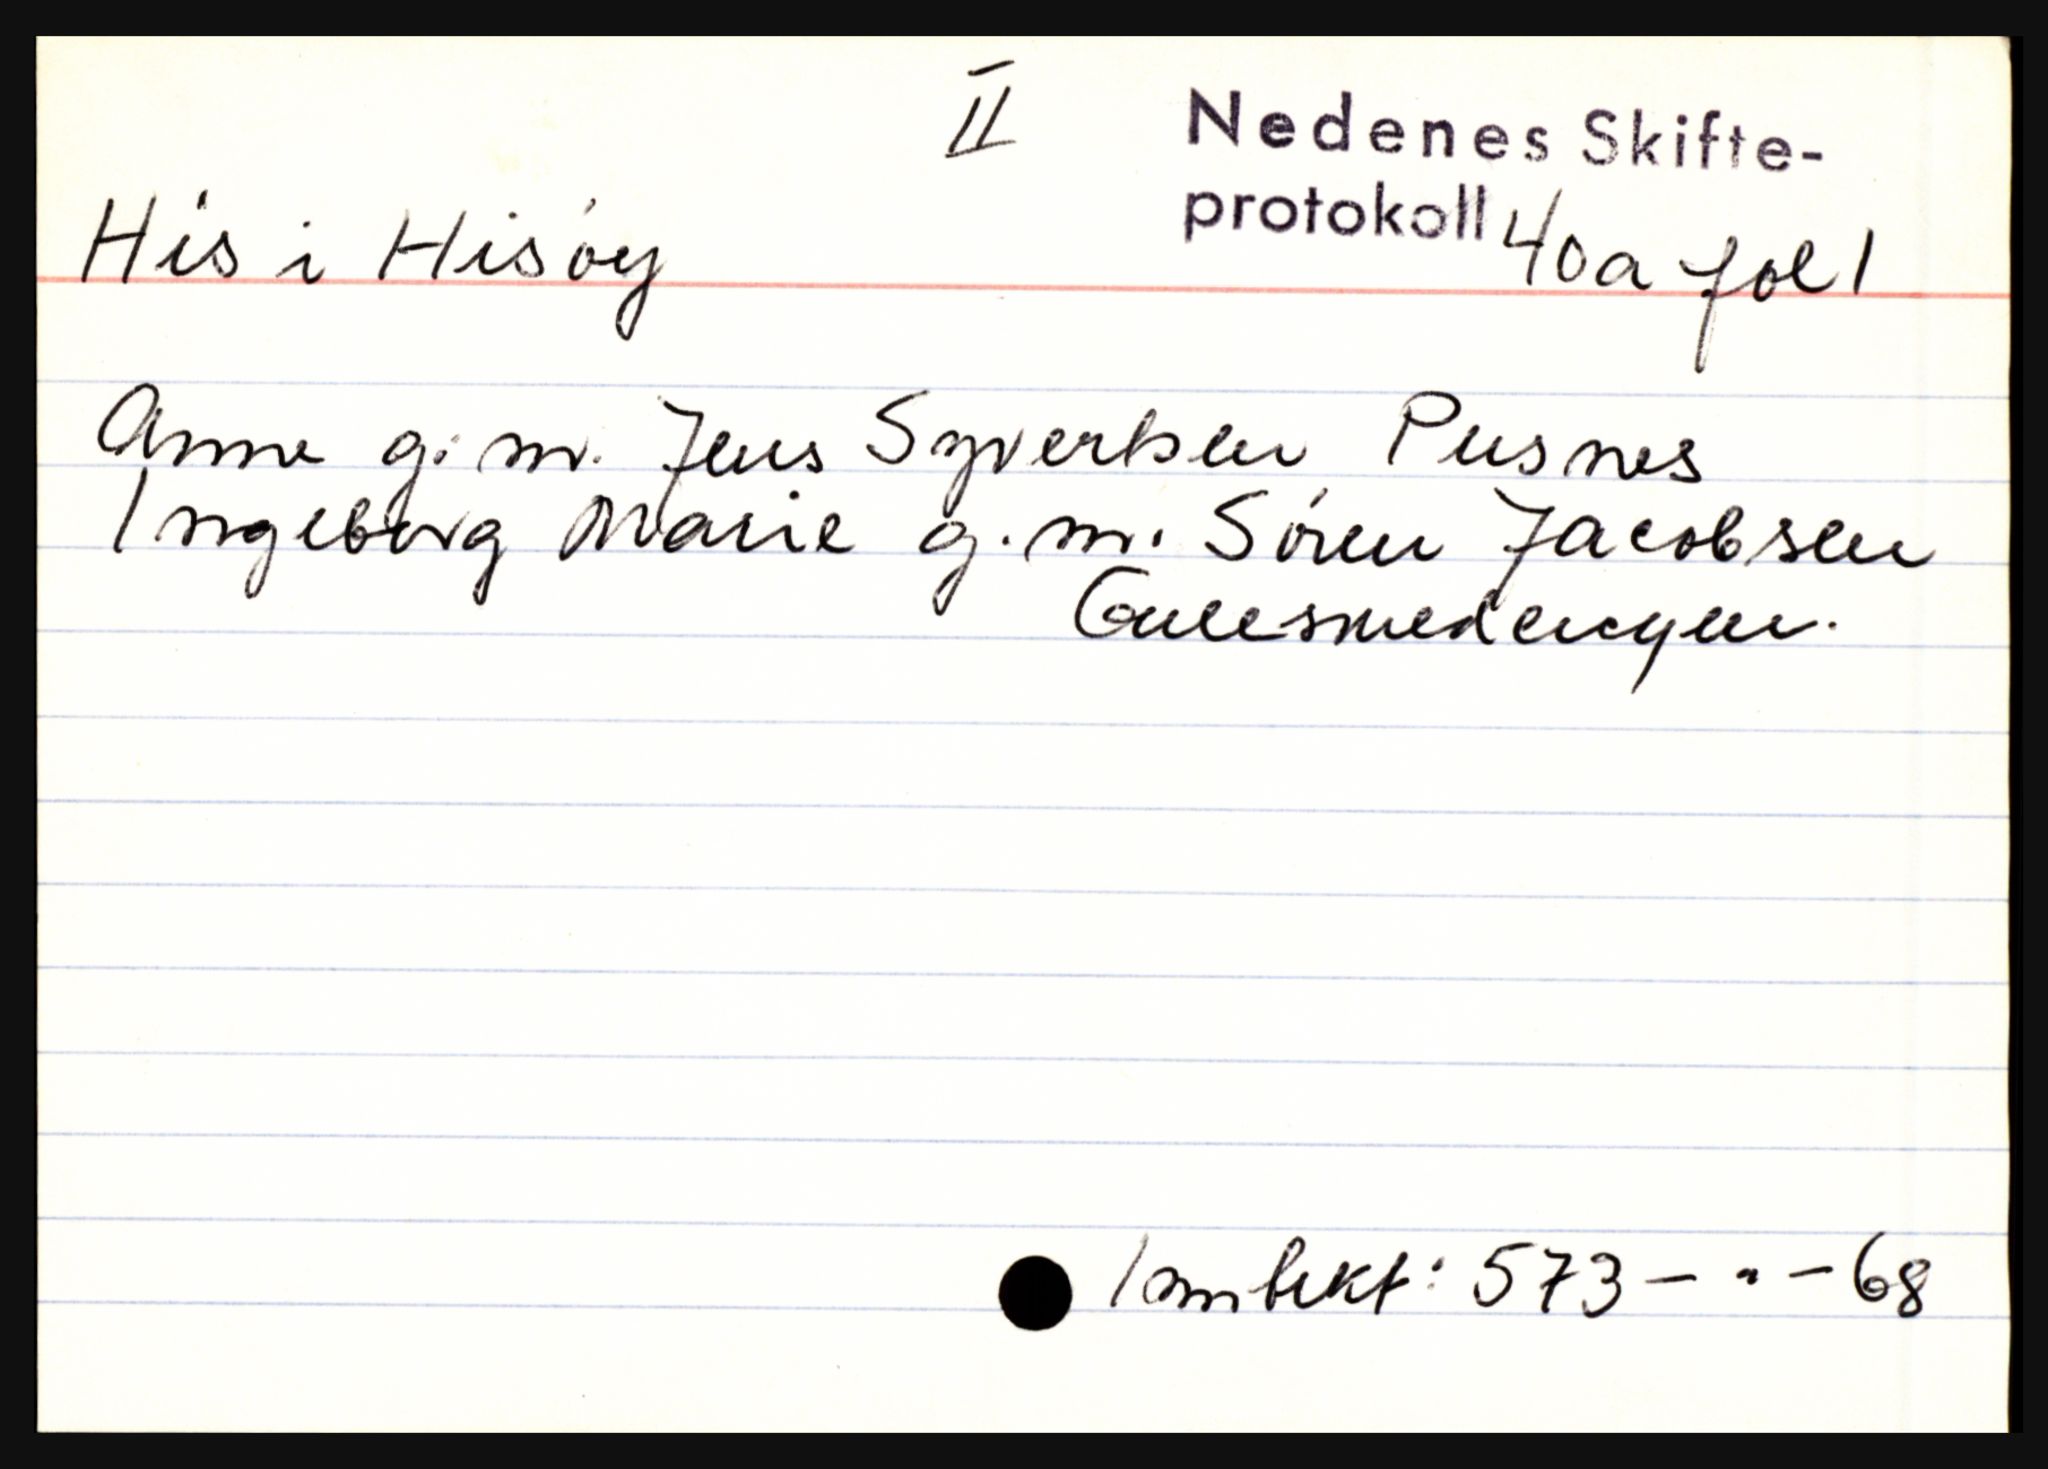 II
Nedenes Skifte-
protokoll 40a fol 1
His i Hisøy
Anne g. m. Jens Syvertsen Pusnes
Ingeborg Marie g. m. Søren Jacobsen
Gullsmedengen.
Innbekt: 573 - " - 68